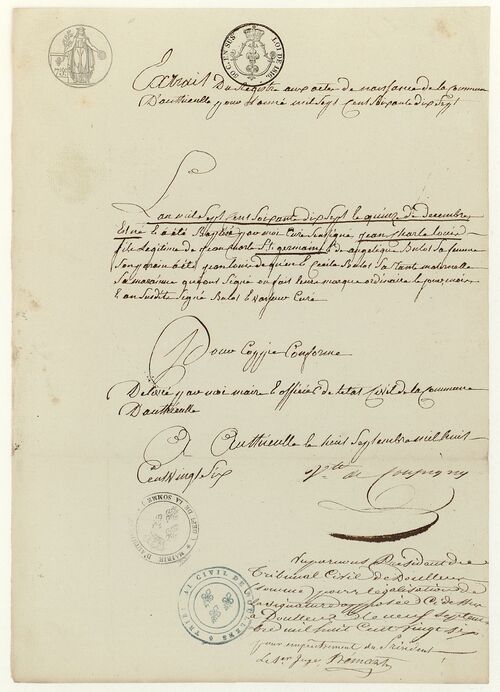 Extrait Du Registre aux actes de naissance de la commune
D'authieulle pour l'année mil sept cent soixante dix sept
L'an mil sept cent soixante dix sept le quinze de decembre
Est né & a été Baptisé par moi Curé soussigné jean charle louis
fils legitime de jean charle St germain & de angelique Bulot sa femme
Son parain a été jean louis & Cecile Bulot sa tante maternelle
Sa maraine qui ont signé ou fait leurs marque ordinaire le jour mois
& an susdits signé Bulot & vasseur Curé
Pour Coppie Conforme
Delivré par moi maire & officier de l'etat Civil de la Commune
D'authieulle
A Authieulle le huit Septembre mil huit
Cent vingt six
Vte de Coupigny
Vu par nous Président du
Tribunal Civil de Doullens
(Somme) pour légalisation de
la signature apposée Ci-dessus
à Doullens le neuf Septembre
mil huit Cent vingt six
pour empêchement du Président
Le 1er Juge
TRIBUNAL CIVIL DE DOULLENS